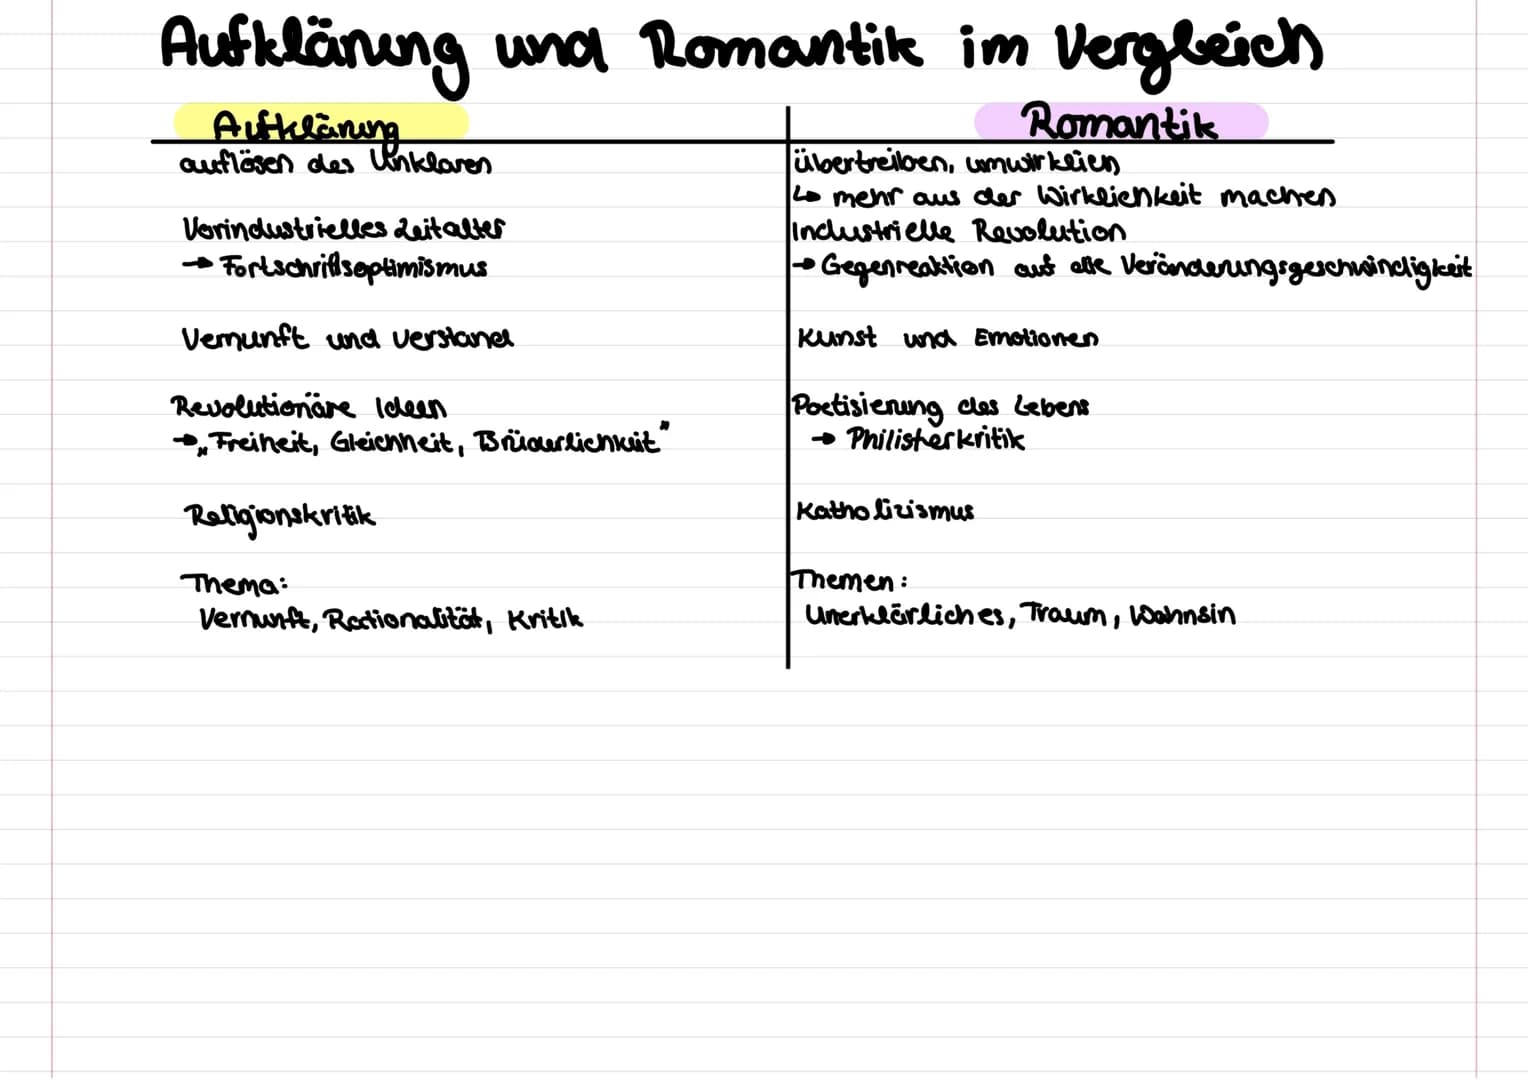 Aufklärung und Romantik im Vergleich
Aufklärung
auflösen des Unklaren
Vorindustrielles Zeitalter
→ Fortschrittsoptimismus
Vernunft und Verstand
Revolutionäre Ideen
→ „Freiheit, Gleichheit, Brüderlichkeit"
Religionskritik
Thema:
Vernunft, Rationalität, Kritik
Romantik
übertreiben, unwirklich
↳ mehr aus der Wirklichkeit machen
Industrielle Revolution
→ Gegenreaktion auf die Veränderungsgeschwindigkeit
Kunst und Emotionen
Poetisierung des Lebens
→ Philisterkritik
Katholizismus
Themen:
Unerklärliches, Traum, Wahnsin